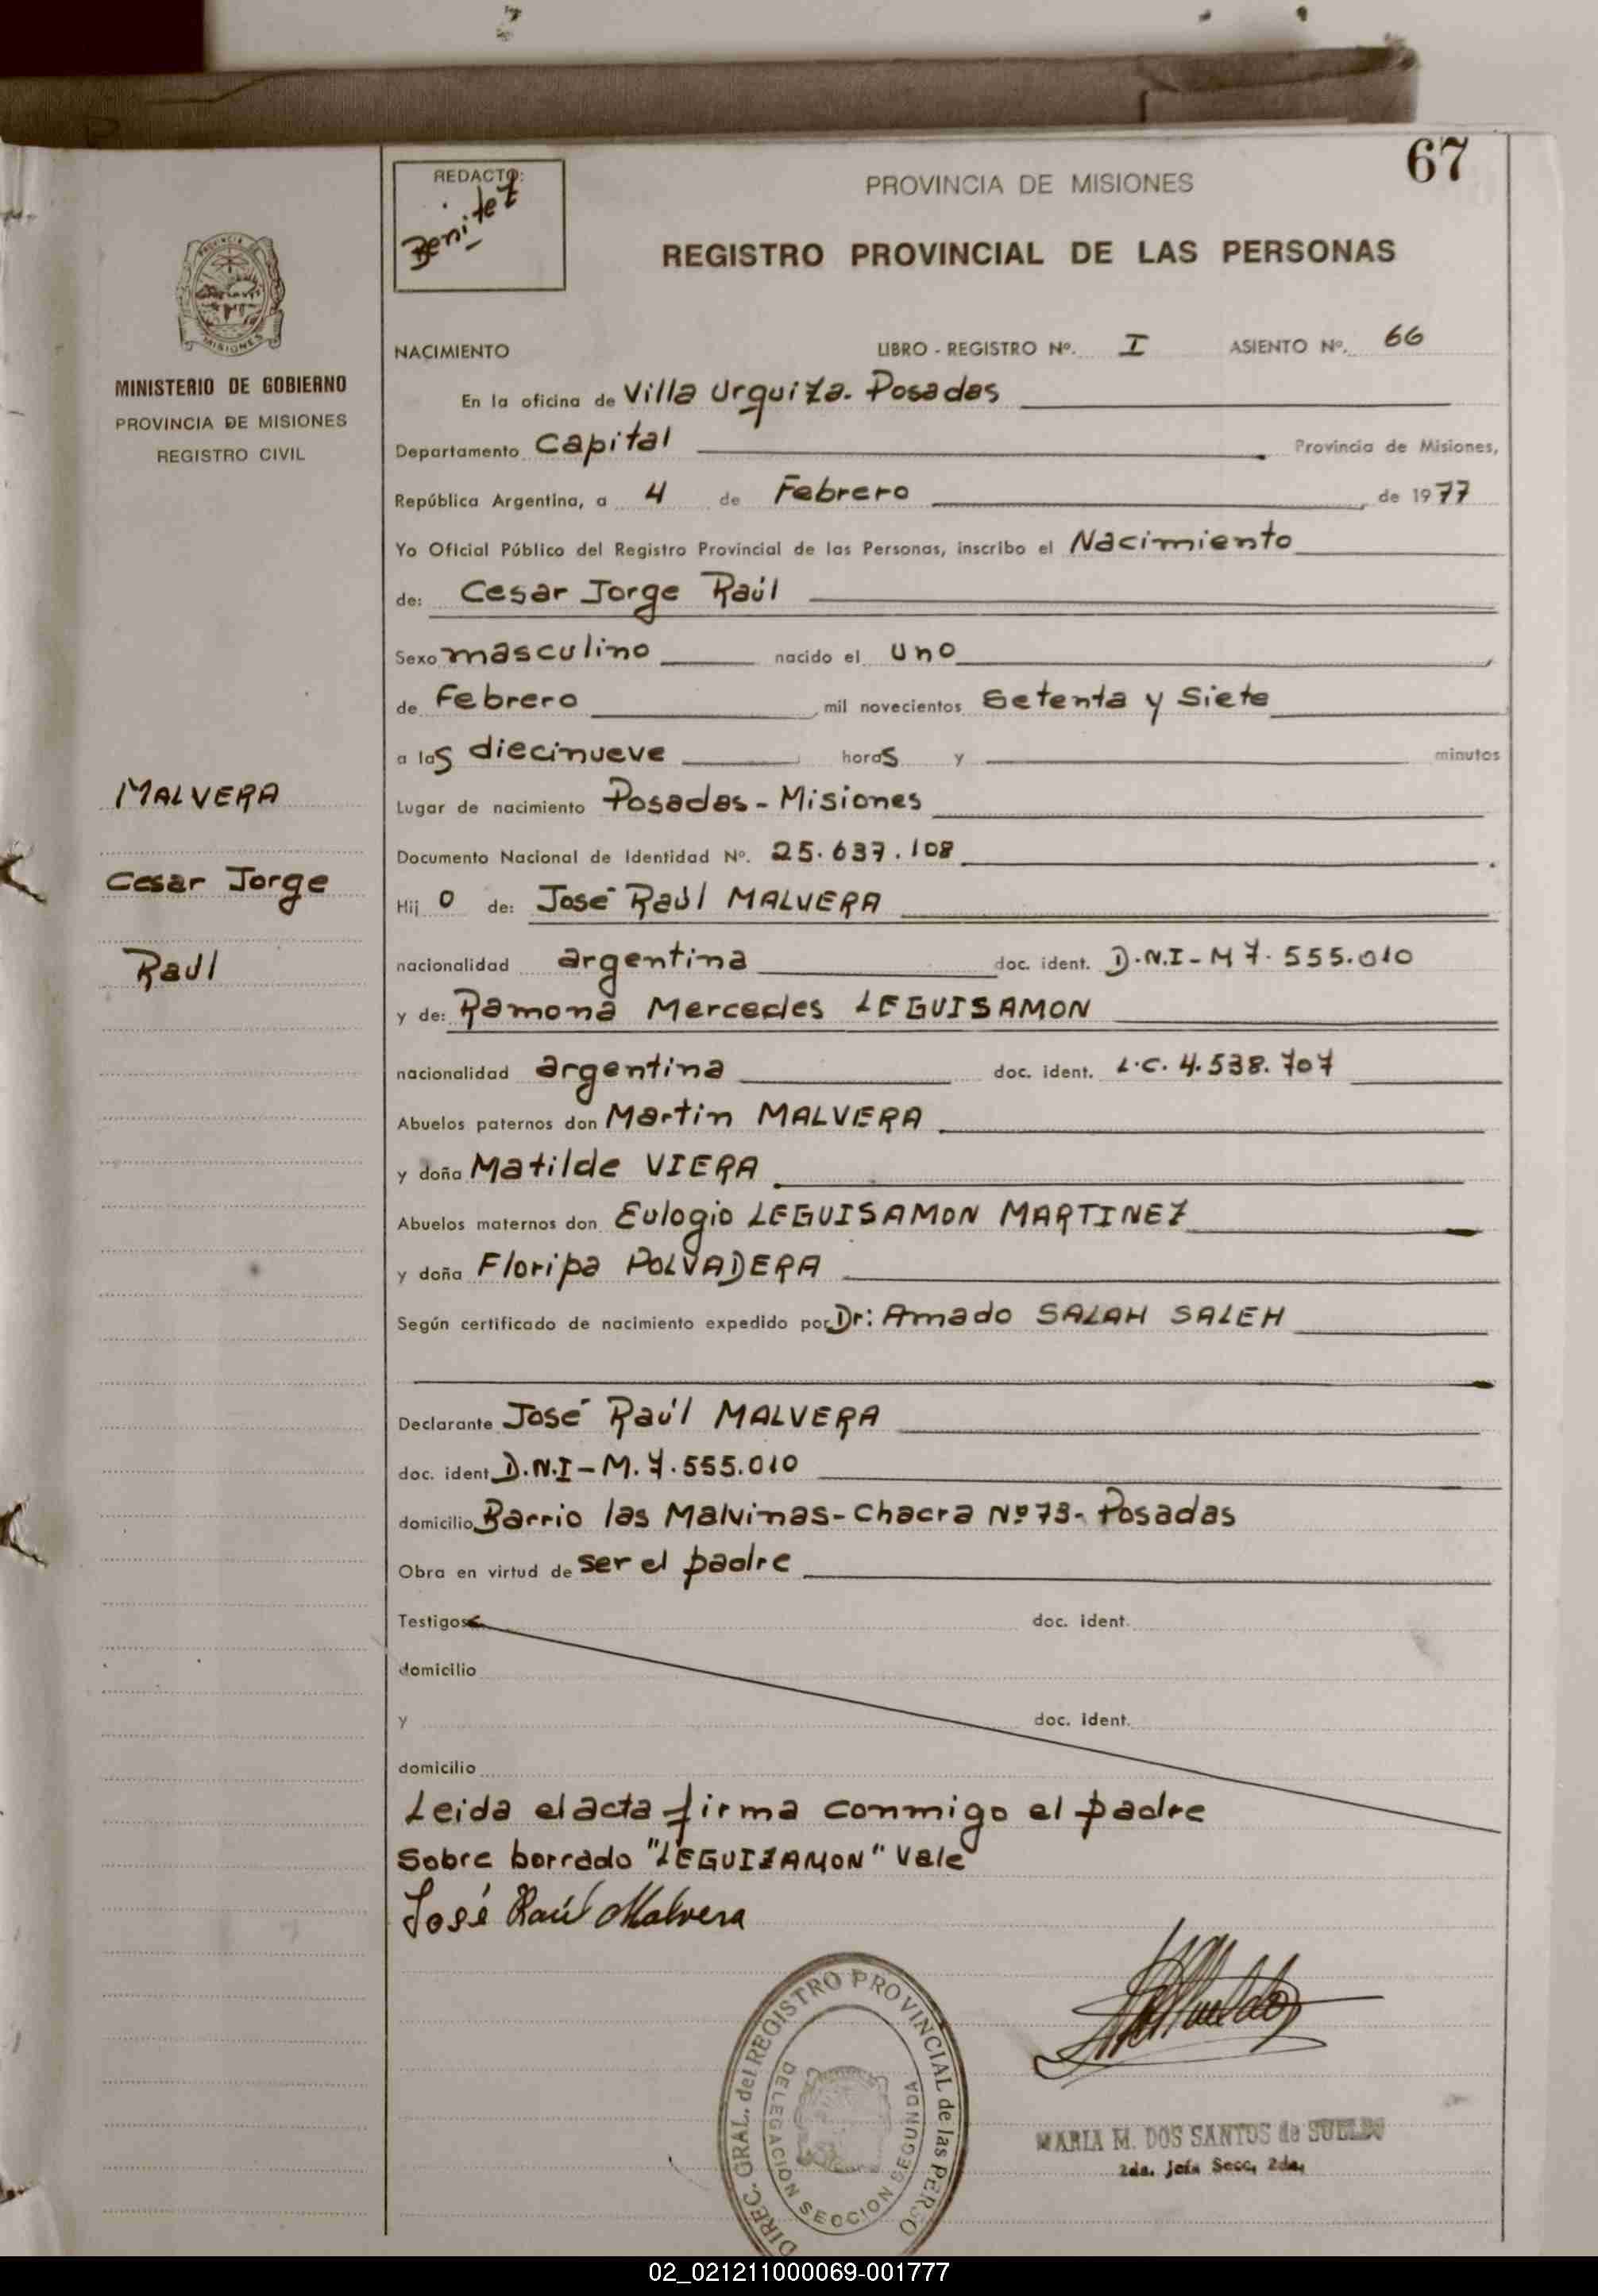 67
REDACTO:
Benitez
PROVINCIA DE MISIONES
REGISTRO PROVINCIAL DE LAS PERSONAS
PROVINCIA DE
MISIONES
MINISTERIO DE GOBIERNO
PROVINCIA DE MISIONES
REGISTRO CIVIL
MALVERA
Cesar Jorge
Raul
NACIMIENTO LIBRO - REGISTRO Nº. I ASIENTO Nº. 66
En la oficina de Villa Urquiza. Posadas
Departamento Capital Provincia de Misiones,
República Argentina, a 4 de Febrero de 1977
Yo Oficial Público del Registro Provincial de las Personas, inscribo el Nacimiento
de: Cesar Jorge Raúl
Sexo masculino nacido el uno
de Febrero mil novecientos Setenta y Siete
a las diecinueve horas y minutos
Lugar de nacimiento Posadas - Misiones
Documento Nacional de Identidad Nº. 25.637.108
Hij o de: José Raúl MALVERA
nacionalidad argentina doc. ident. D.N.I - M 7.555.010
y de: Ramona Mercedes LEGUISAMON
nacionalidad argentina doc. ident. L.C. 4.538.707
Abuelos paternos don Martin MALVERA
y doña Matilde VIERA
Abuelos maternos don Eulogio LEGUISAMON MARTINEZ
y doña Floripa POLVADERA
Según certificado de nacimiento expedido por Dr: Amado SALAH SALEH
Declarante José Raúl MALVERA
doc. ident D.N.I - M. 7.555.010
domicilio Barrio las Malvinas - Chacra Nº 73 - Posadas
Obra en virtud de ser el padre
Testigos doc. ident.
domicilio
y doc. ident.
domicilio
Leida el acta firma conmigo el padre
Sobre borrado "LEGUIZAMON" Vale
José Raúl Malvera
DIREC. GRAL. del REGISTRO PROVINCIAL de las PERSO
DELEGACION SECCION SEGUNDA
MARIA M. DOS SANTOS de SUELDO
2da. Jefa Secc. 2da.
02_021211000069-001777